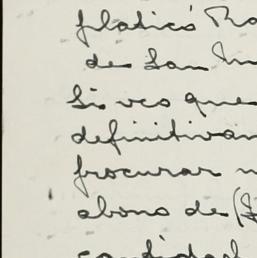 platicó
de San
Si veo que
definitivam
procurar
abono de (
cantidad